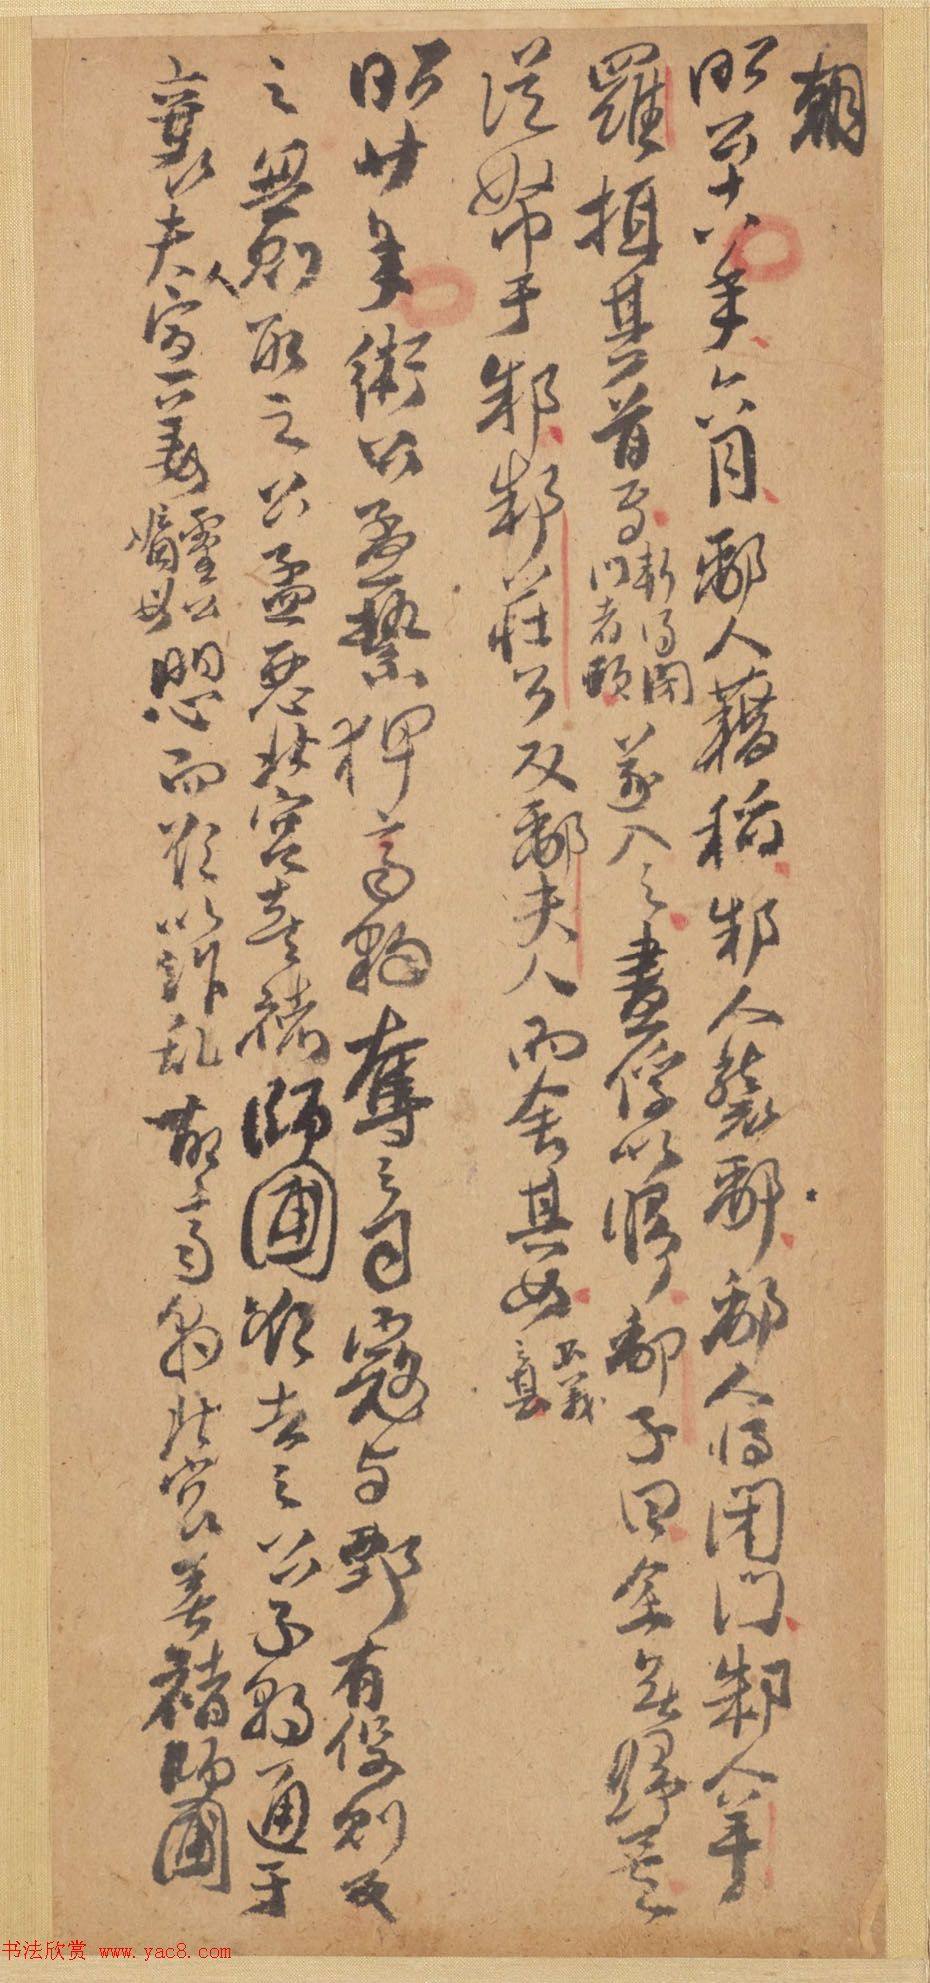 朝
昭公十八年六月鄅人藉稻邾人襲鄅鄅人將閉門邾人羊
羅攝其首焉斬得閉門者頭遂入之盡俘以歸鄅子曰余無歸矣
從帑于邾邾莊公反鄅夫人而舍其女
昭廿年衛公孟縶狎齊豹奪之司寇与鄄有役則反
之無則取之公孟惡北宮喜褚師圃欲去之公子朝通于
襄夫人宣姜靈公嫡母懼而欲以作乱故齊豹北宮喜褚師圃
书法欣赏 www.yac8.com